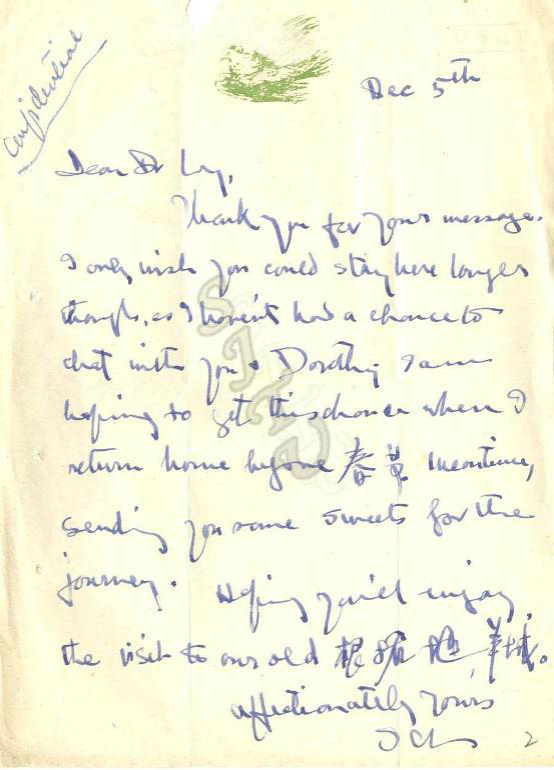 Confidential
Dec 5th
Dear Dr
Thank you for your message.
I only wish you could stay here longer
though, as I haven't had a chance to
chat with you & Dorothy. I am
hoping to get this chance when I
return home before 春节. Meantime,
sending you some sweets for the
journey. Hoping you'll enjoy
the visit to our old 根据地, 羊城.
affectionately yours
2